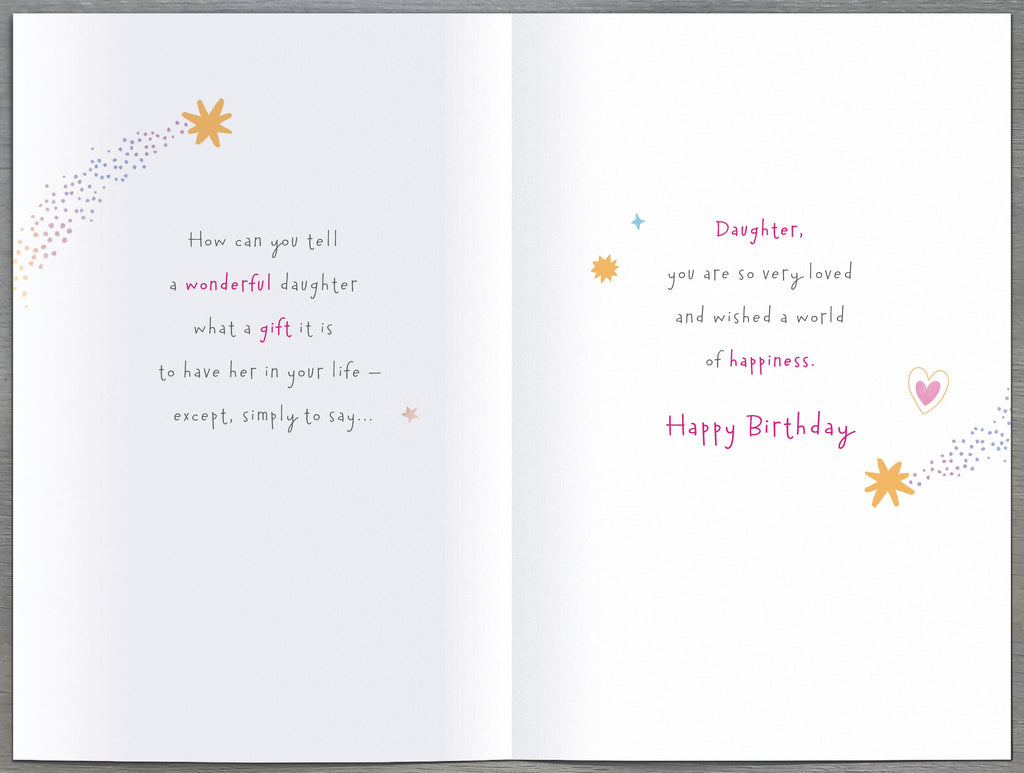 How can you tell
a wonderful daughter
what a gift it is
to have her in your life –
except, simply to say...
Daughter,
you are so very loved
and wished a world
of happiness.
Happy Birthday